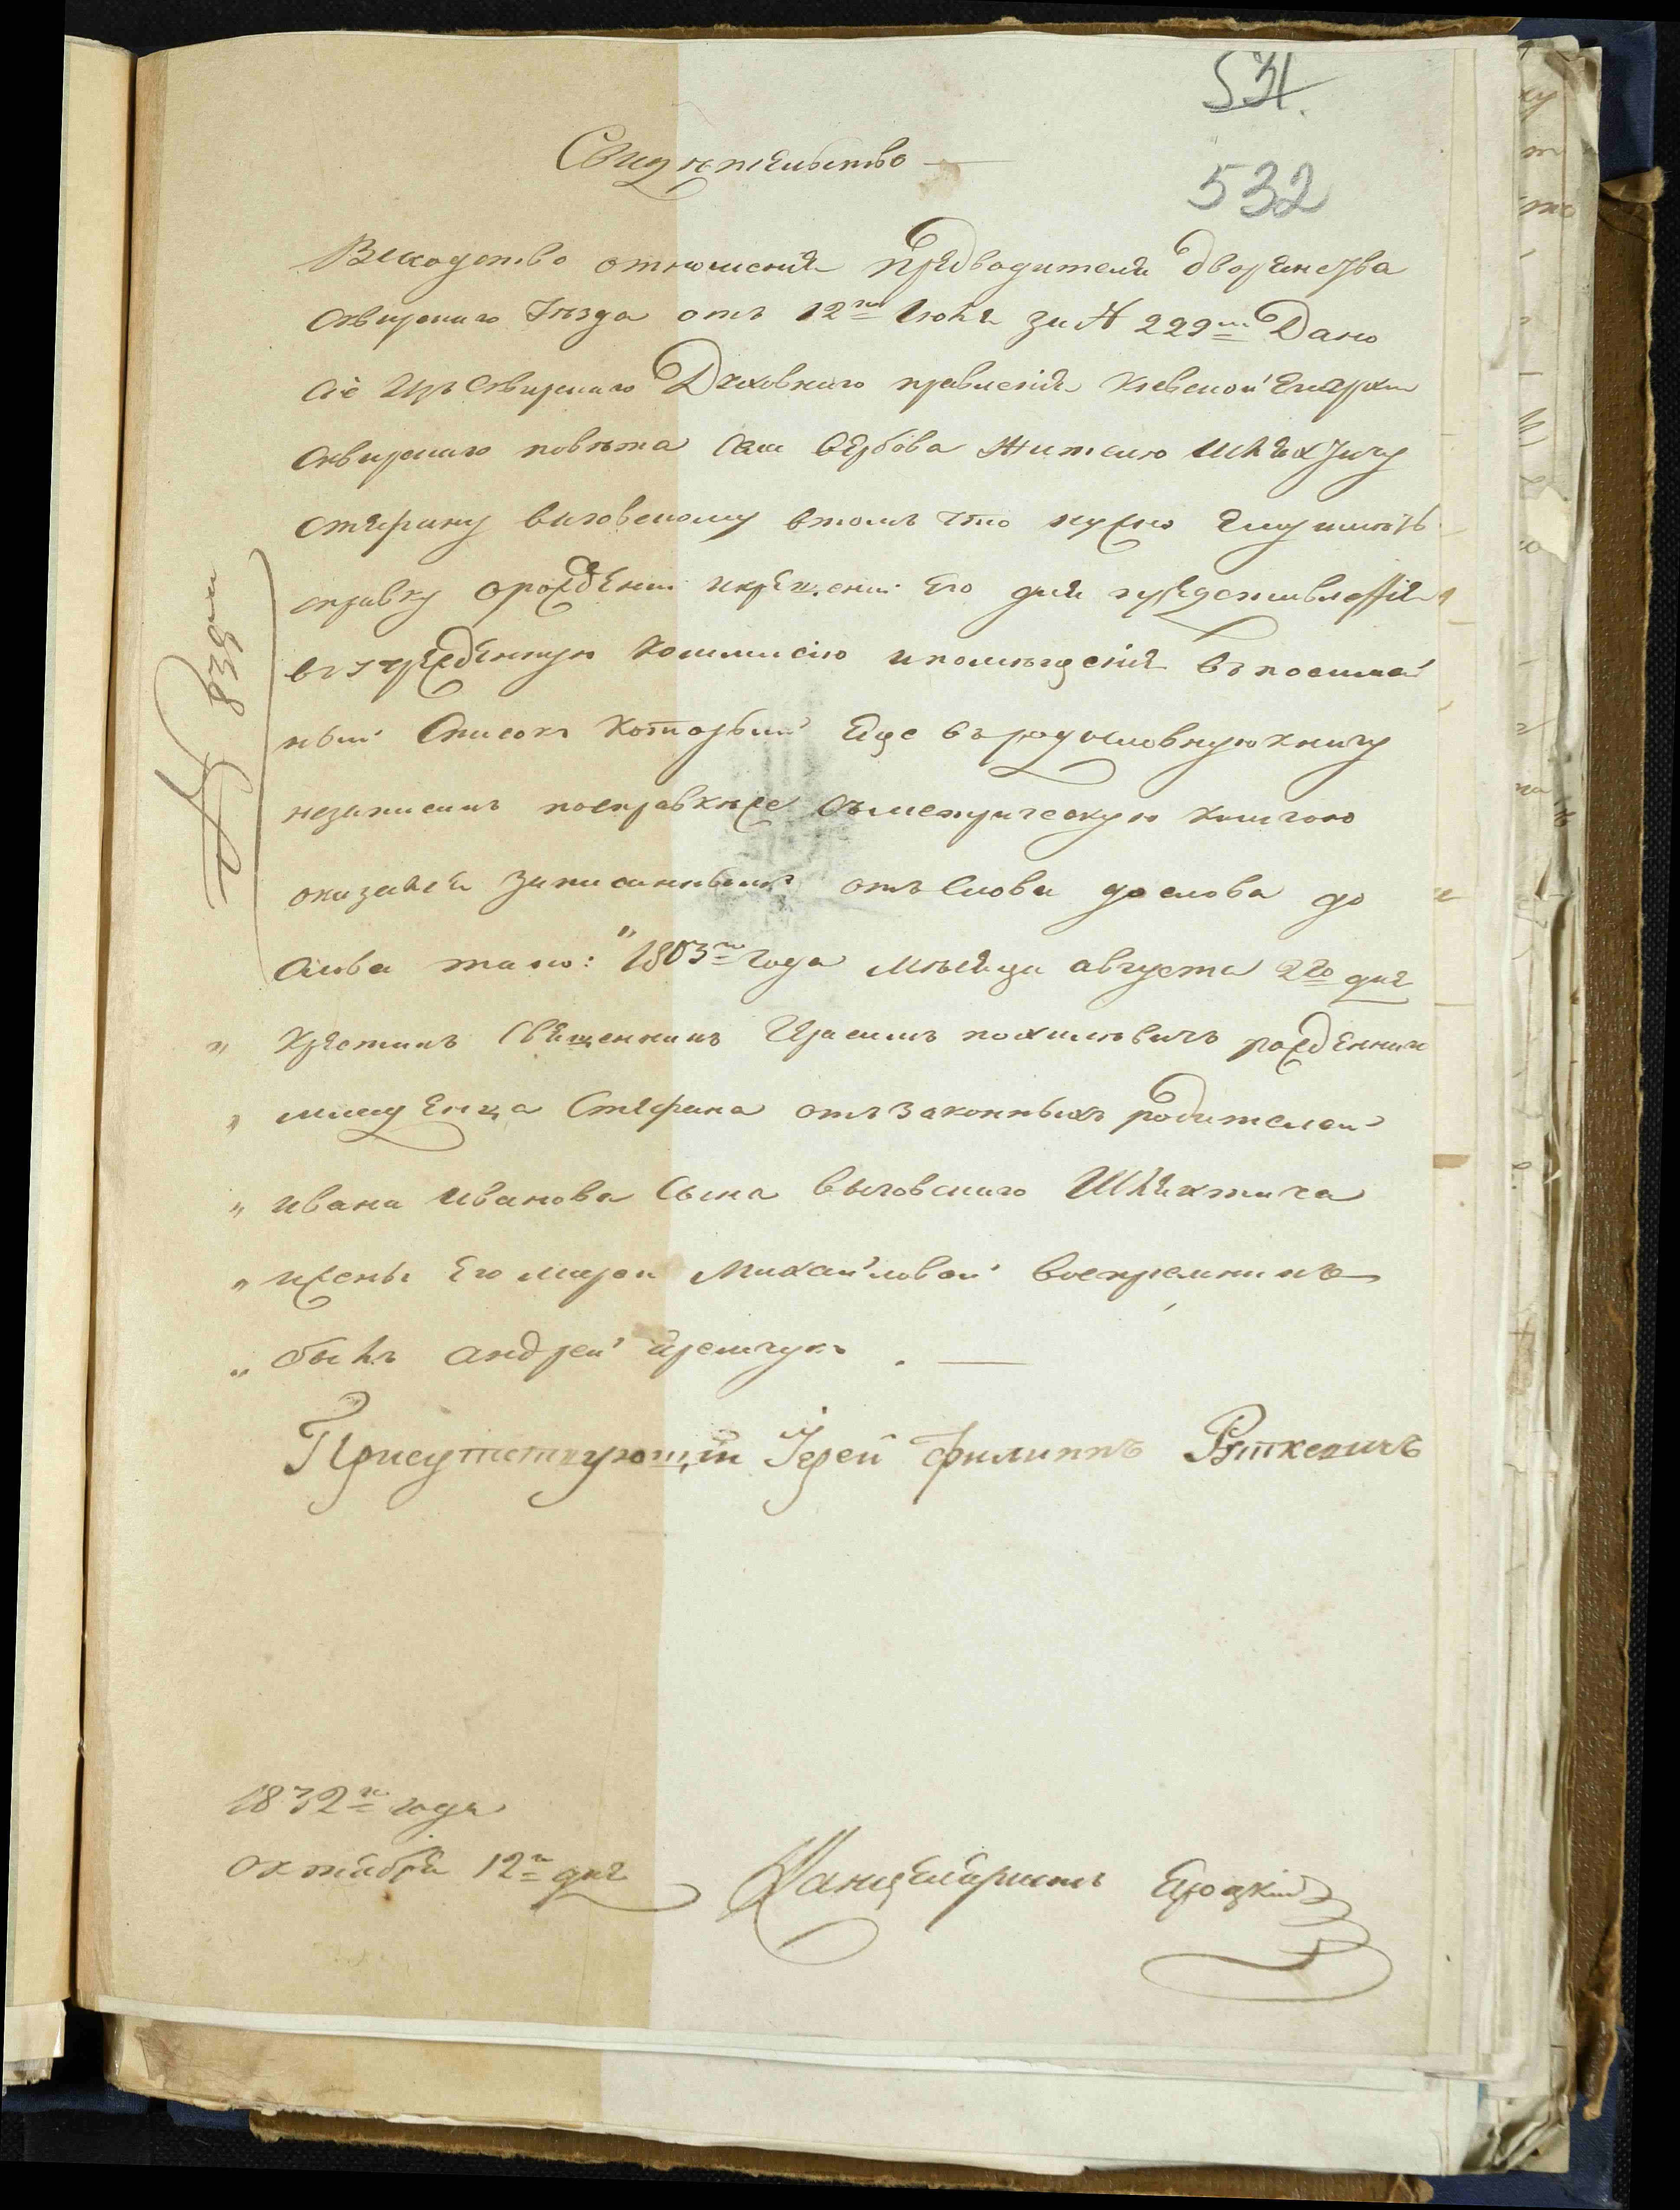 531.
532
Свидѣтельство
Вслѣдство отношенія Предводителя Дворянства
Сквирскаго Уѣзда отъ 12го Іюля за № 229м Дано
Сіе Изъ Сквирскаго Духовнаго правленія Кіевской Епархіи
Сквирскаго повѣта Села Вербова Жителю Шляхтичу
Стефану выговскому втомъ что нужно Ему имѣть
справку орожденіи икрещеніи Его для представленія
въ учрежденную Коммисію ипомѣщенія въ посимей
ный Списокъ Который Еще въродословную книгу
незаписанъ посправкѣже Съметрическую книгою
оказался Записаннымъ отъ Слова дослова до
Слова тако: "1803го года мѣсяца августа 2го дня
" Крестилъ Священникъ Герасимъ похилевичъ рожденнаго
" младенца Стефана отъ Законныхъ родителей
" ивана иванова Сына выговскаго Шляхтича
" ижены Его маріи Михайловой воспріемникъ
" былъ андрей
Присутствующій Іерей Филиппъ Руткевичъ
1832го года
октября 12го дня
Канцеляристъ
№ 938